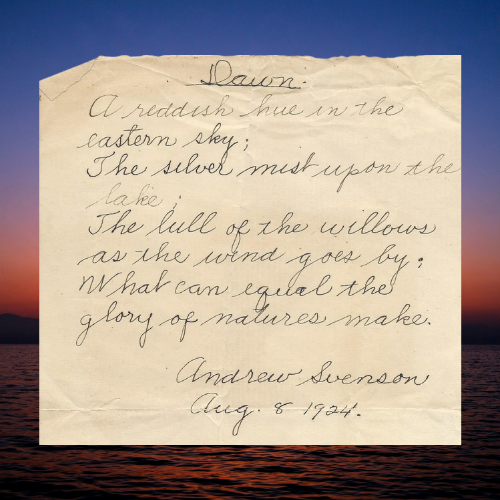 Dawn.
A reddish hue in the
eastern sky;
The silver mist upon the
lake;
The lull of the willows
as the wind goes by;
What can equal the
glory of natures make.
Andrew Svenson
Aug. 8 1924.